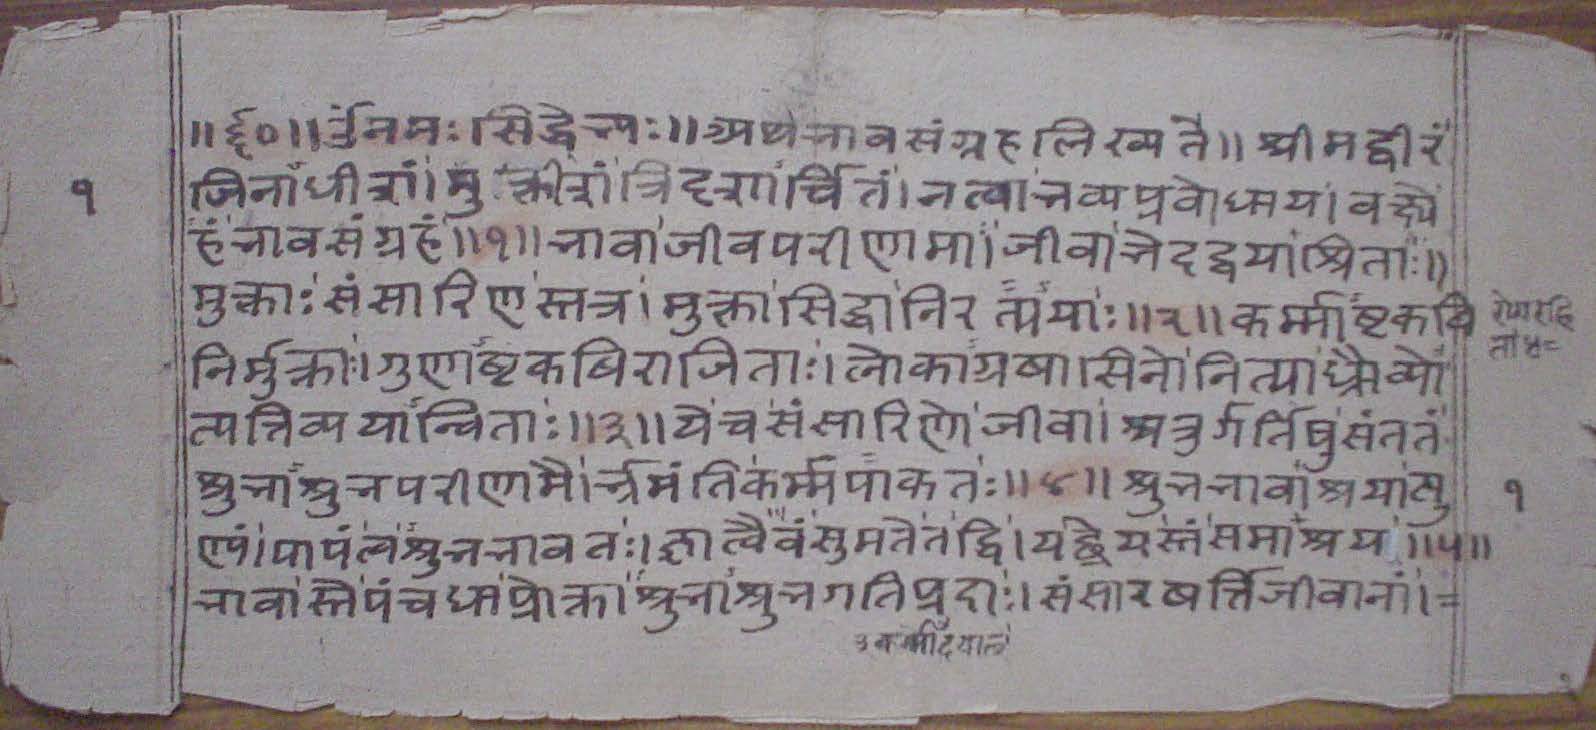 ॥ र्द० ॥ ॐ नमः सिद्धेभ्यः ॥ अथ भावसंग्रह लिख्यतै ॥ श्रीमद्वीरं
१
जिनाधीशं । मुक्तीशं त्रिदशार्चितं । नत्वा भव्यप्रबोधाय । वक्ष्ये
हं भावसंग्रहं ॥ १ ॥ भावा जीवपरीणामा । जीवा भेदद्वयाश्रिताः ॥
मुक्ताः संसारिणस्तत्र । मुक्ता सिद्धा निरत्ययाः ॥ २ ॥ कर्म्माष्टकवि
निर्मुक्ताः । गुणाष्टकबिराजिताः । लोकाग्रबासिनो नित्या ध्रौव्यो
त्पत्तिव्ययान्विताः ॥ ३ ॥ ये च संसारिणो जीवा । श्चतुर्गतिषु संततं
शुभाशुभपरीणामै । र्भ्रमंति कर्म्मपाकतः ॥ ४ ॥ शुभभावाश्रया त्पु
१
ण्यं । पापं त्वशुभभावतः । ज्ञात्वैवं सुमते तद्धि । यछ्रेयस्तं समाश्रय ॥ ५ ॥
भावास्ते पंचधा प्रोक्ता । शुभाशुभगतिप्रदाः । संसारबर्त्तिजीवानां । =